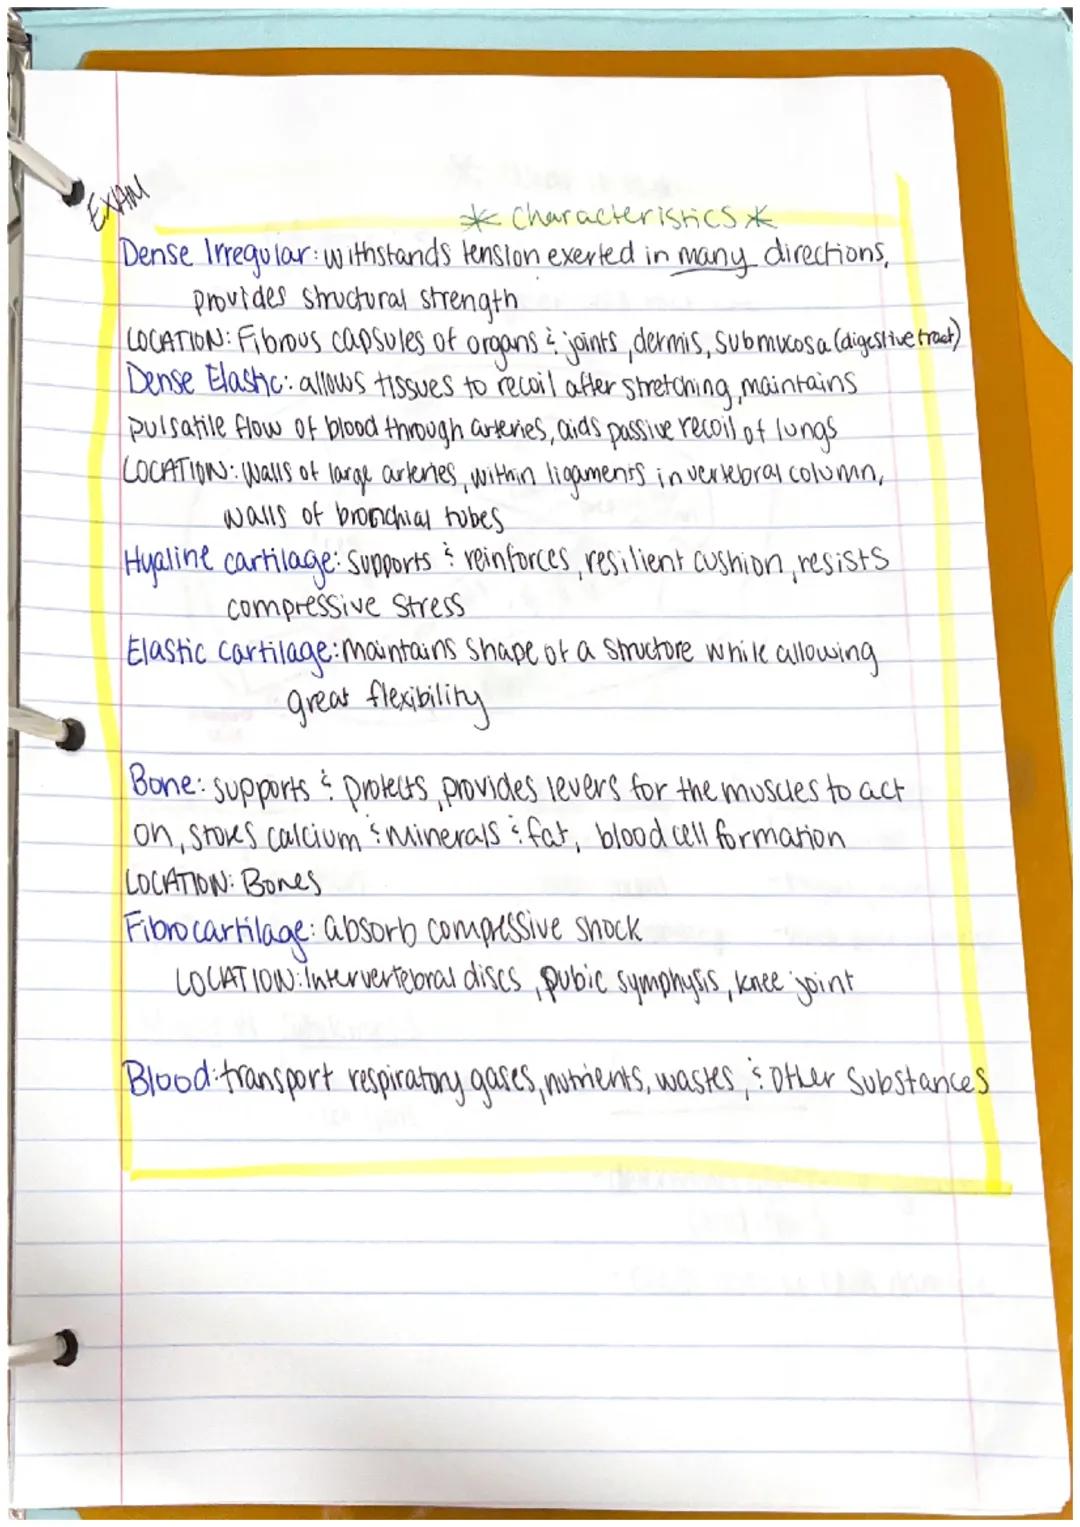 EXAM
* Characteristics *
Dense Irregular: withstands tension exerted in many directions,
provides structural strength
LOCATION: Fibrous capsules of organs & joints, dermis, submucosa (digestive tract)
Dense Elastic: allows tissues to recoil after stretching, maintains
pulsatile flow of blood through arteries, aids passive recoil of lungs
LOCATION: Walls of large arteries, within ligaments in vertebral column,
walls of bronchial tubes
Hyaline cartilage: Supports & reinforces, resilient cushion, resists
compressive stress
Elastic cartilage: Maintains shape of a structure while allowing
great flexibility
Bone: supports & protects, provides levers for the muscles to act
on, stores calcium & minerals & fat, blood cell formation
LOCATION: Bones
Fibrocartilage: absorb compressive shock
LOCATION: Intervertebral discs, pubic symphysis, knee joint
Blood: transport respiratory gases, nutrients, wastes, & other substances